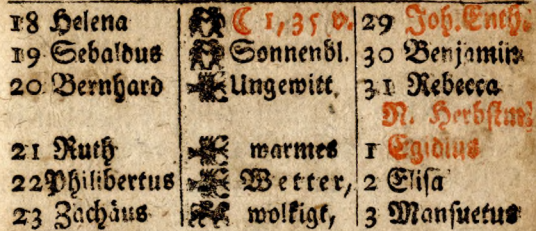 18 Helena ☾ 1, 35 v. 29 Joh. Enth.
19 Sebaldus Sonnenbl. 30 Benjamin
20 Bernhard Ungewitt. 31 Rebecca
N. Herbstm:
21 Ruth warmes 1 Egidius
22 Philibertus Wetter, 2 Elisa
23 Zachäus wolkigt, 3 Mansuetus